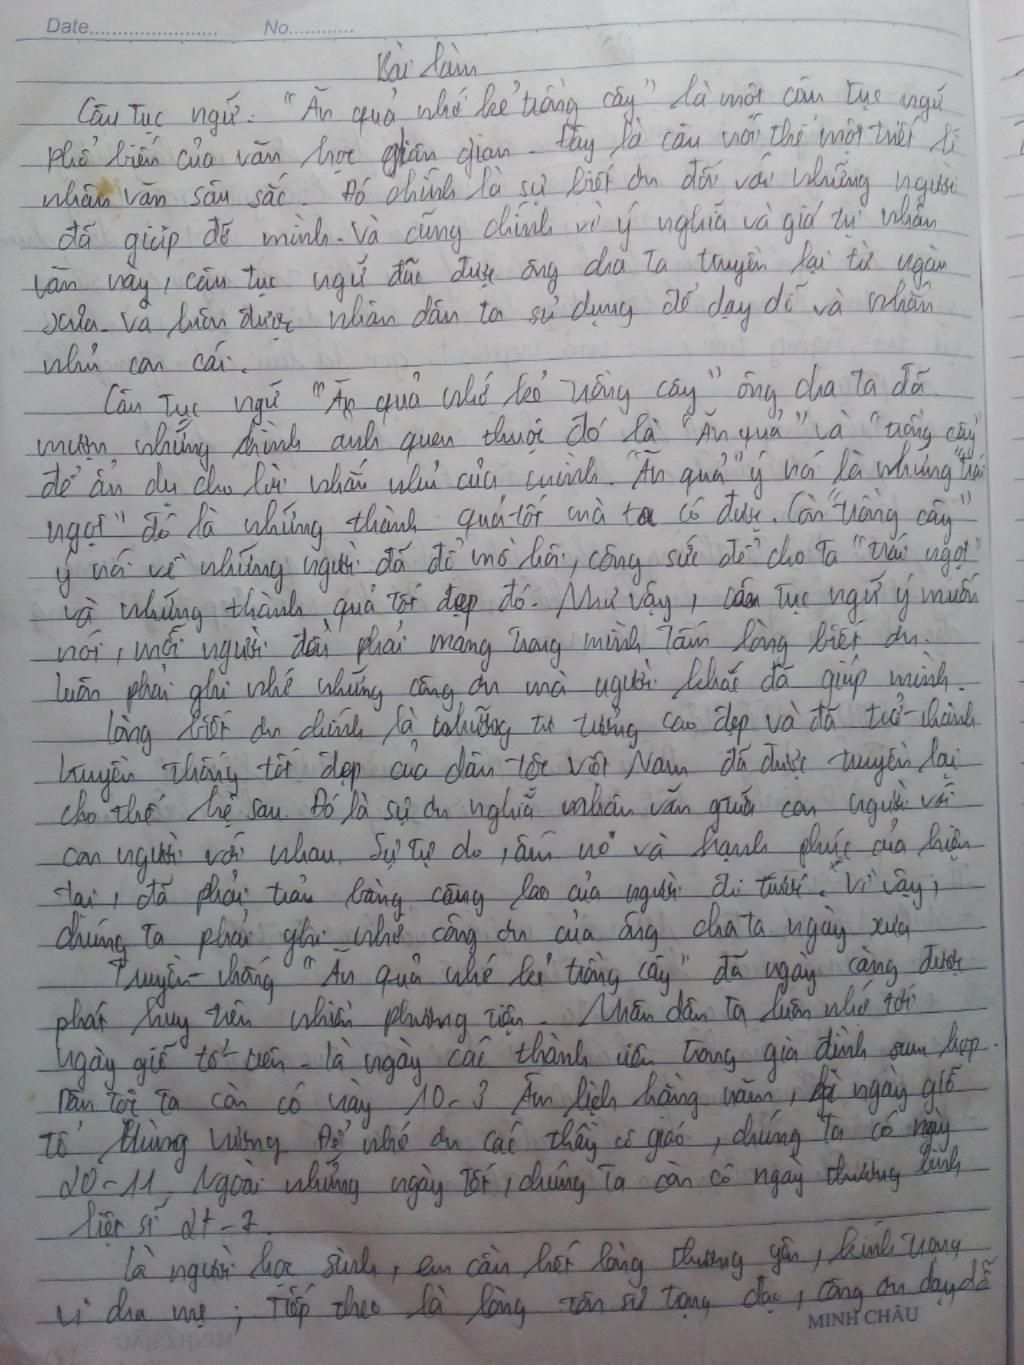 Date............ No............
Bài làm
Câu tục ngữ. "Ăn quả nhớ kẻ trồng cây" là một câu tục ngữ
phổ biến của văn học giân gian. Đây là câu nói thể một triết lí
nhân văn sâu sắc. Đó chính là sự biết ơn đối với những người
đã giúp đỡ mình. Và cũng chính vì ý nghĩa và giá trị nhân
văn này, câu tục ngữ đã được ông cha ta truyền lại từ ngàn
xưa. Và luôn được nhân dân ta sử dụng để dạy dỗ và nhắn
nhủ con cái.
Câu tục ngữ "Ăn quả nhớ kẻ trồng cây" ông cha ta đã
mượn những hình anh quen thuộc đó là "Ăn quả" và "trồng cây"
để ẩn dụ cho lời nhắn nhủ của mình. "Ăn quả" ý nói là những "trái
ngọt" đó là những thành quả tốt mà ta có được. Còn "trồng cây"
ý nói về những người đã đổ mồ hôi, công sức để cho ta "trái ngọt"
và những thành quả tốt đẹp đó. Như vậy, câu tục ngữ ý muốn
nói, mỗi người đều phải mang trong mình tấm lòng biết ơn.
luôn phải ghi nhớ những công ơn mà người khác đã giúp mình.
lòng biết ơn chính là những tư tưởng cao đẹp và đã trở thành
truyền thống tốt đẹp của dân tộc Việt Nam đã được truyền lại
cho thế hệ sau. Đó là sự ơn nghĩa nhân văn giữa con người với
con người với nhau. Sự tự do, ấm no và hạnh phúc của hiện
tại, đã phải trả bằng công lao của người đi trước. Vì vậy,
chúng ta phải ghi nhớ công ơn của ông cha ta ngày xưa
Truyền thống "Ăn quả nhớ kẻ trồng cây" đã ngày càng được
phát huy trên nhiều phương tiện. Nhân dân ta luôn nhớ tới
ngày giỗ tổ tiên. là ngày các thành viên trong gia đình sum họp.
Dân tộc ta còn có này 10-3 Âm lịch hằng năm, là ngày giỗ
tổ Hùng Vương. Để nhớ ơn các thầy cô giáo, chúng ta có ngày
20-11. Ngoài những ngày tốt, chúng ta còn có ngày thương binh
liệt sĩ 27-7.
là người học sinh, em cần hết lòng thương yêu, kính trọng
cha mẹ; Tiếp theo là lòng tôn sư trọng đạo, công ơn dạy dỗ
MINH CHÂU